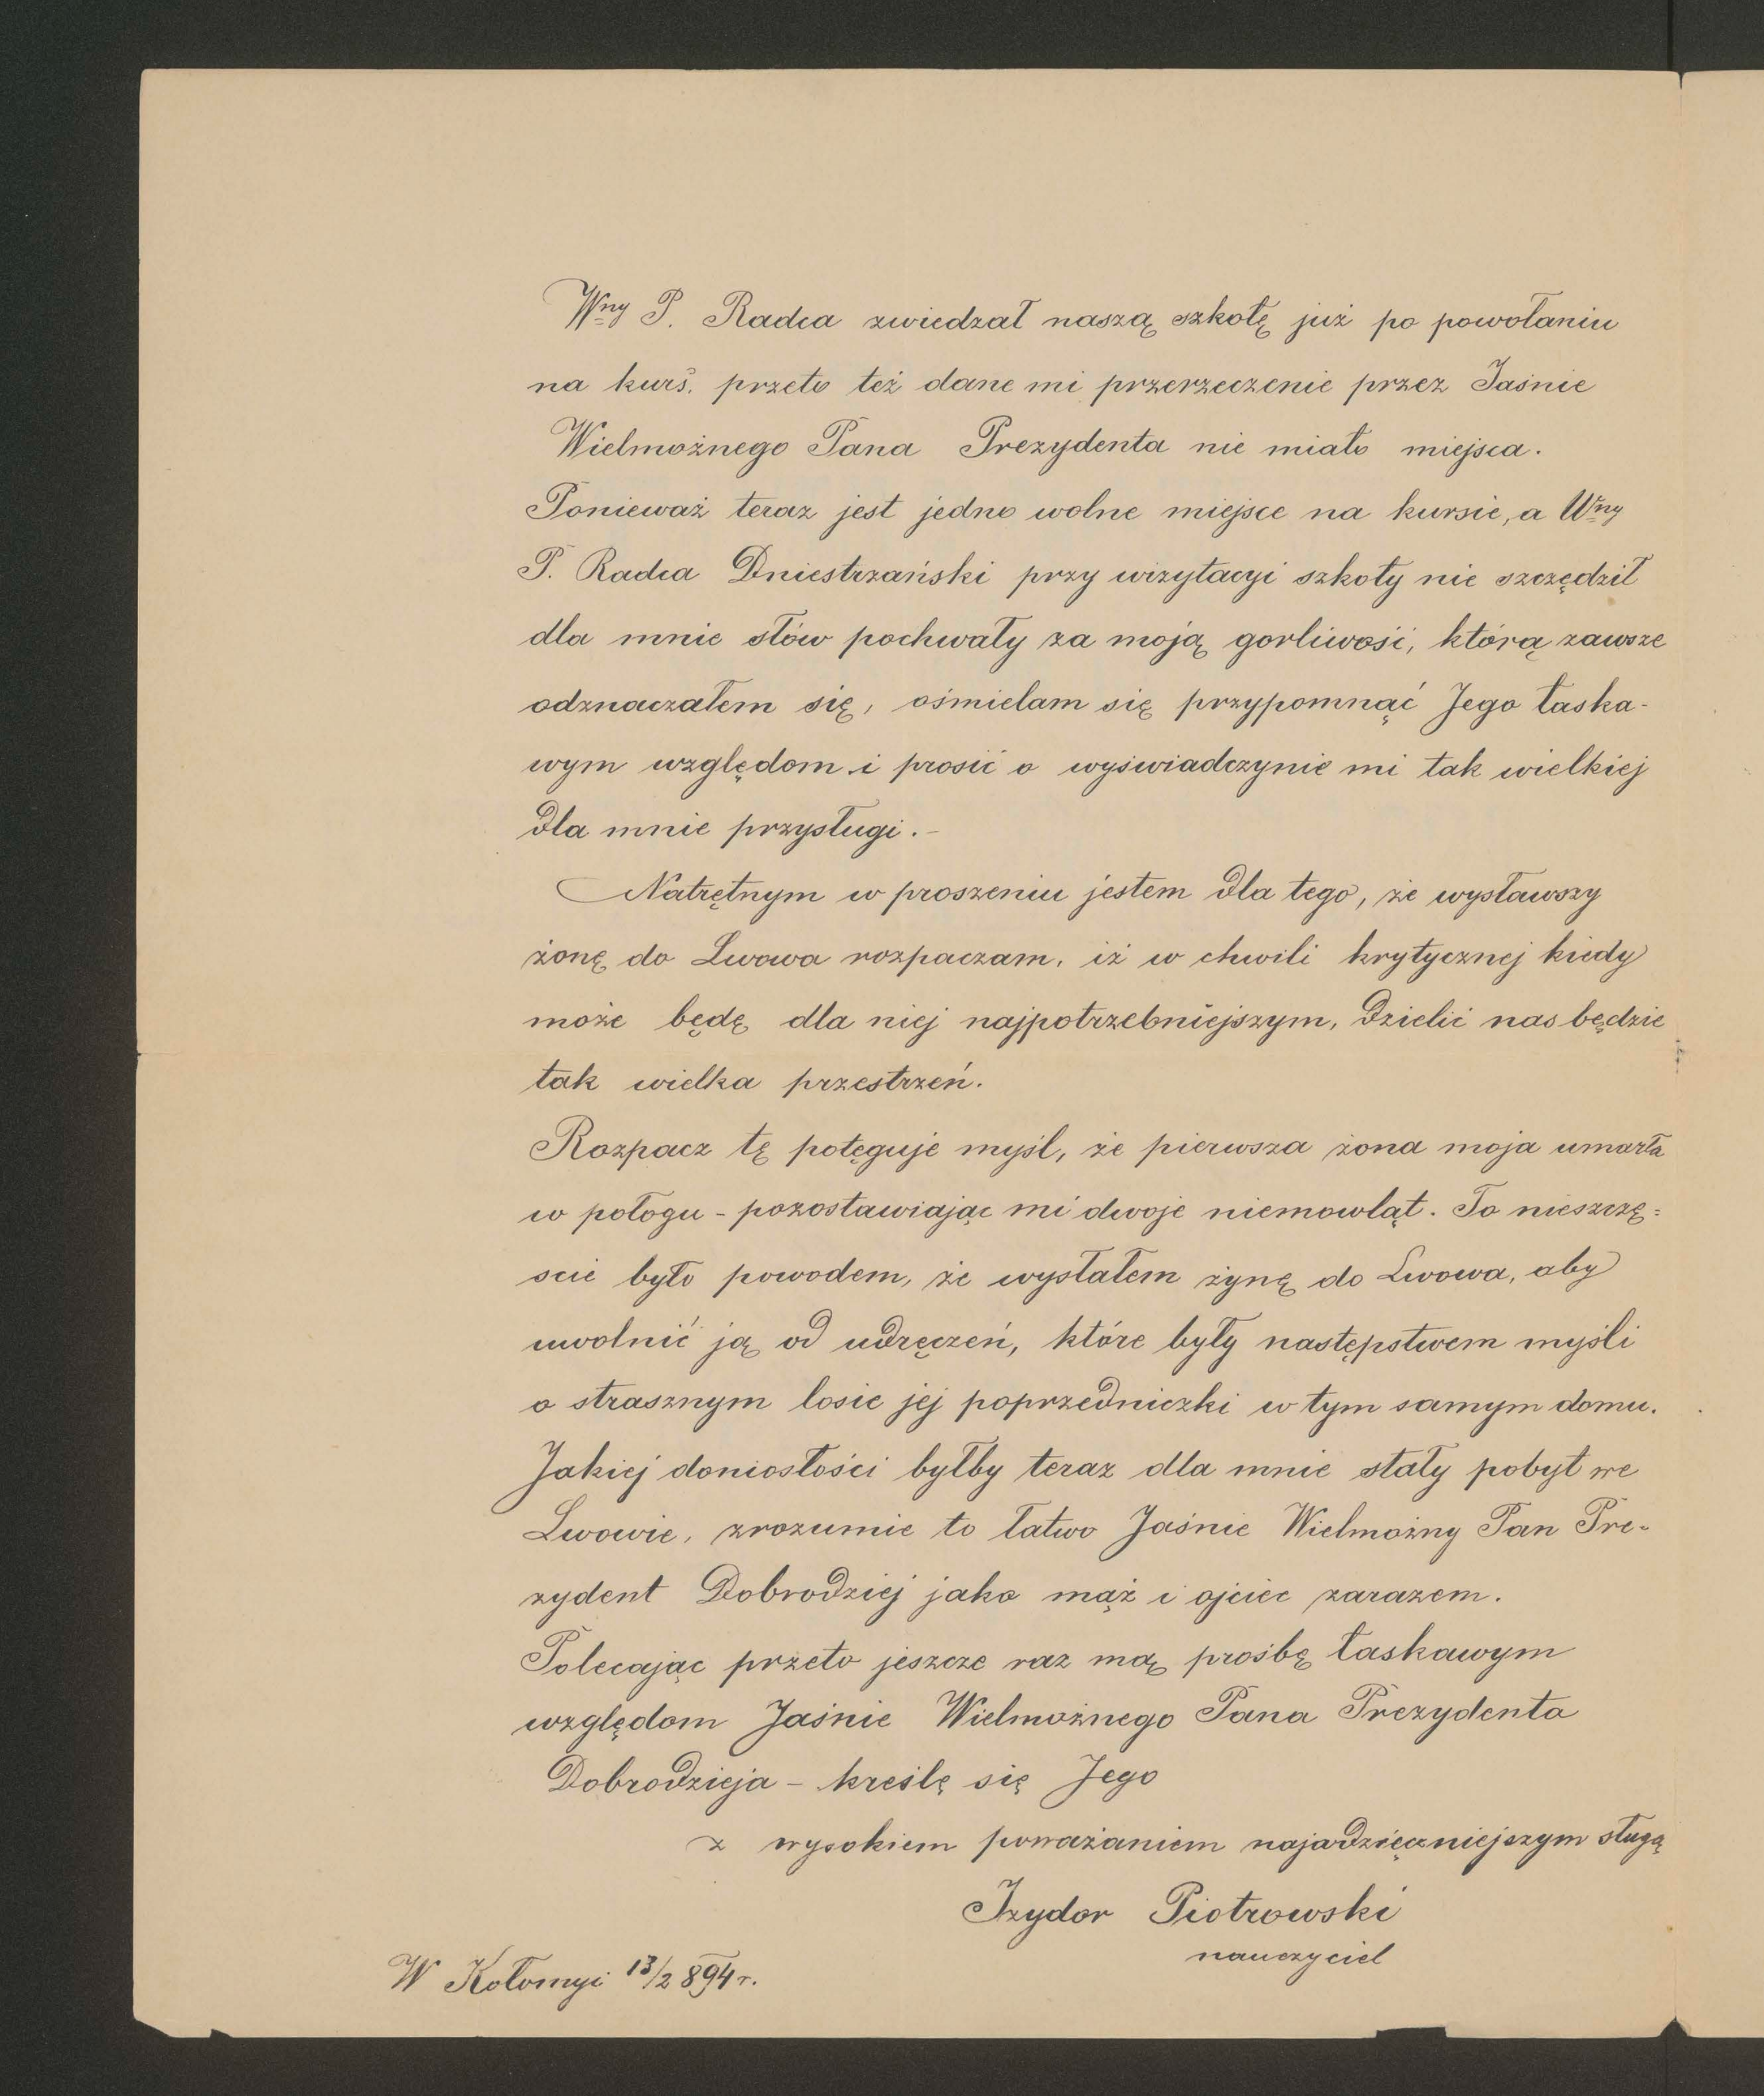 Wny P. Radca zwiedzał naszą szkołę już po powołaniu
na kurs. przeto też dane mi przerzeczenie przez Jaśnie
Wielmożnego Pana Prezydenta nie miało miejsca.
Ponieważ teraz jest jedno wolne miejsce na kursie, a Wny
P. Radca Dniestrzański przy wizytacyi szkoły nie szczędził
dla mnie słów pochwały za moją gorliwość, którą zawsze
odznaczałem się, ośmielam się przypomnąć Jego łaska-
wym względom i prosić o wyświadczynie mi tak wielkiej
dla mnie przysługi.-
Natrętnym w proszeniu jestem dla tego, że wysławszy
żonę do Lwowa rozpaczam, iż w chwili krytycznej kiedy
może będę dla niej najpotrzebniejszym, dzielić nas będzie
tak wielka przestrzeń.
Rozpacz tę potęguje myśl, że pierwsza żona moja umarła
w połogu - pozostawiając mi dwoje niemowląt. To nieszczę=
scie było powodem, że wysłałem żynę do Lwowa, aby
uwolnić ją od udręczeń, które były następstwem myśli
o strasznym losie jej poprzedniczki w tym samym domu.
Jakiej doniosłości byłby teraz dla mnie stały pobyt we
Lwowie, zrozumie to łatwo Jaśnie Wielmożny Pan Pre-
zydent Dobrodziej jako mąż i ojciec zarazem.
Polecając przeto jeszcze raz mą prośbę łaskawym
względom Jaśnie Wielmożnego Pana Prezydenta
Dobrodzieja - kreślę się Jego
z wysokiem poważaniem najwdzięczniejszym sługą
Izydor Piotrowski
nauczyciel
W Kołomyi 13/2 894 r.